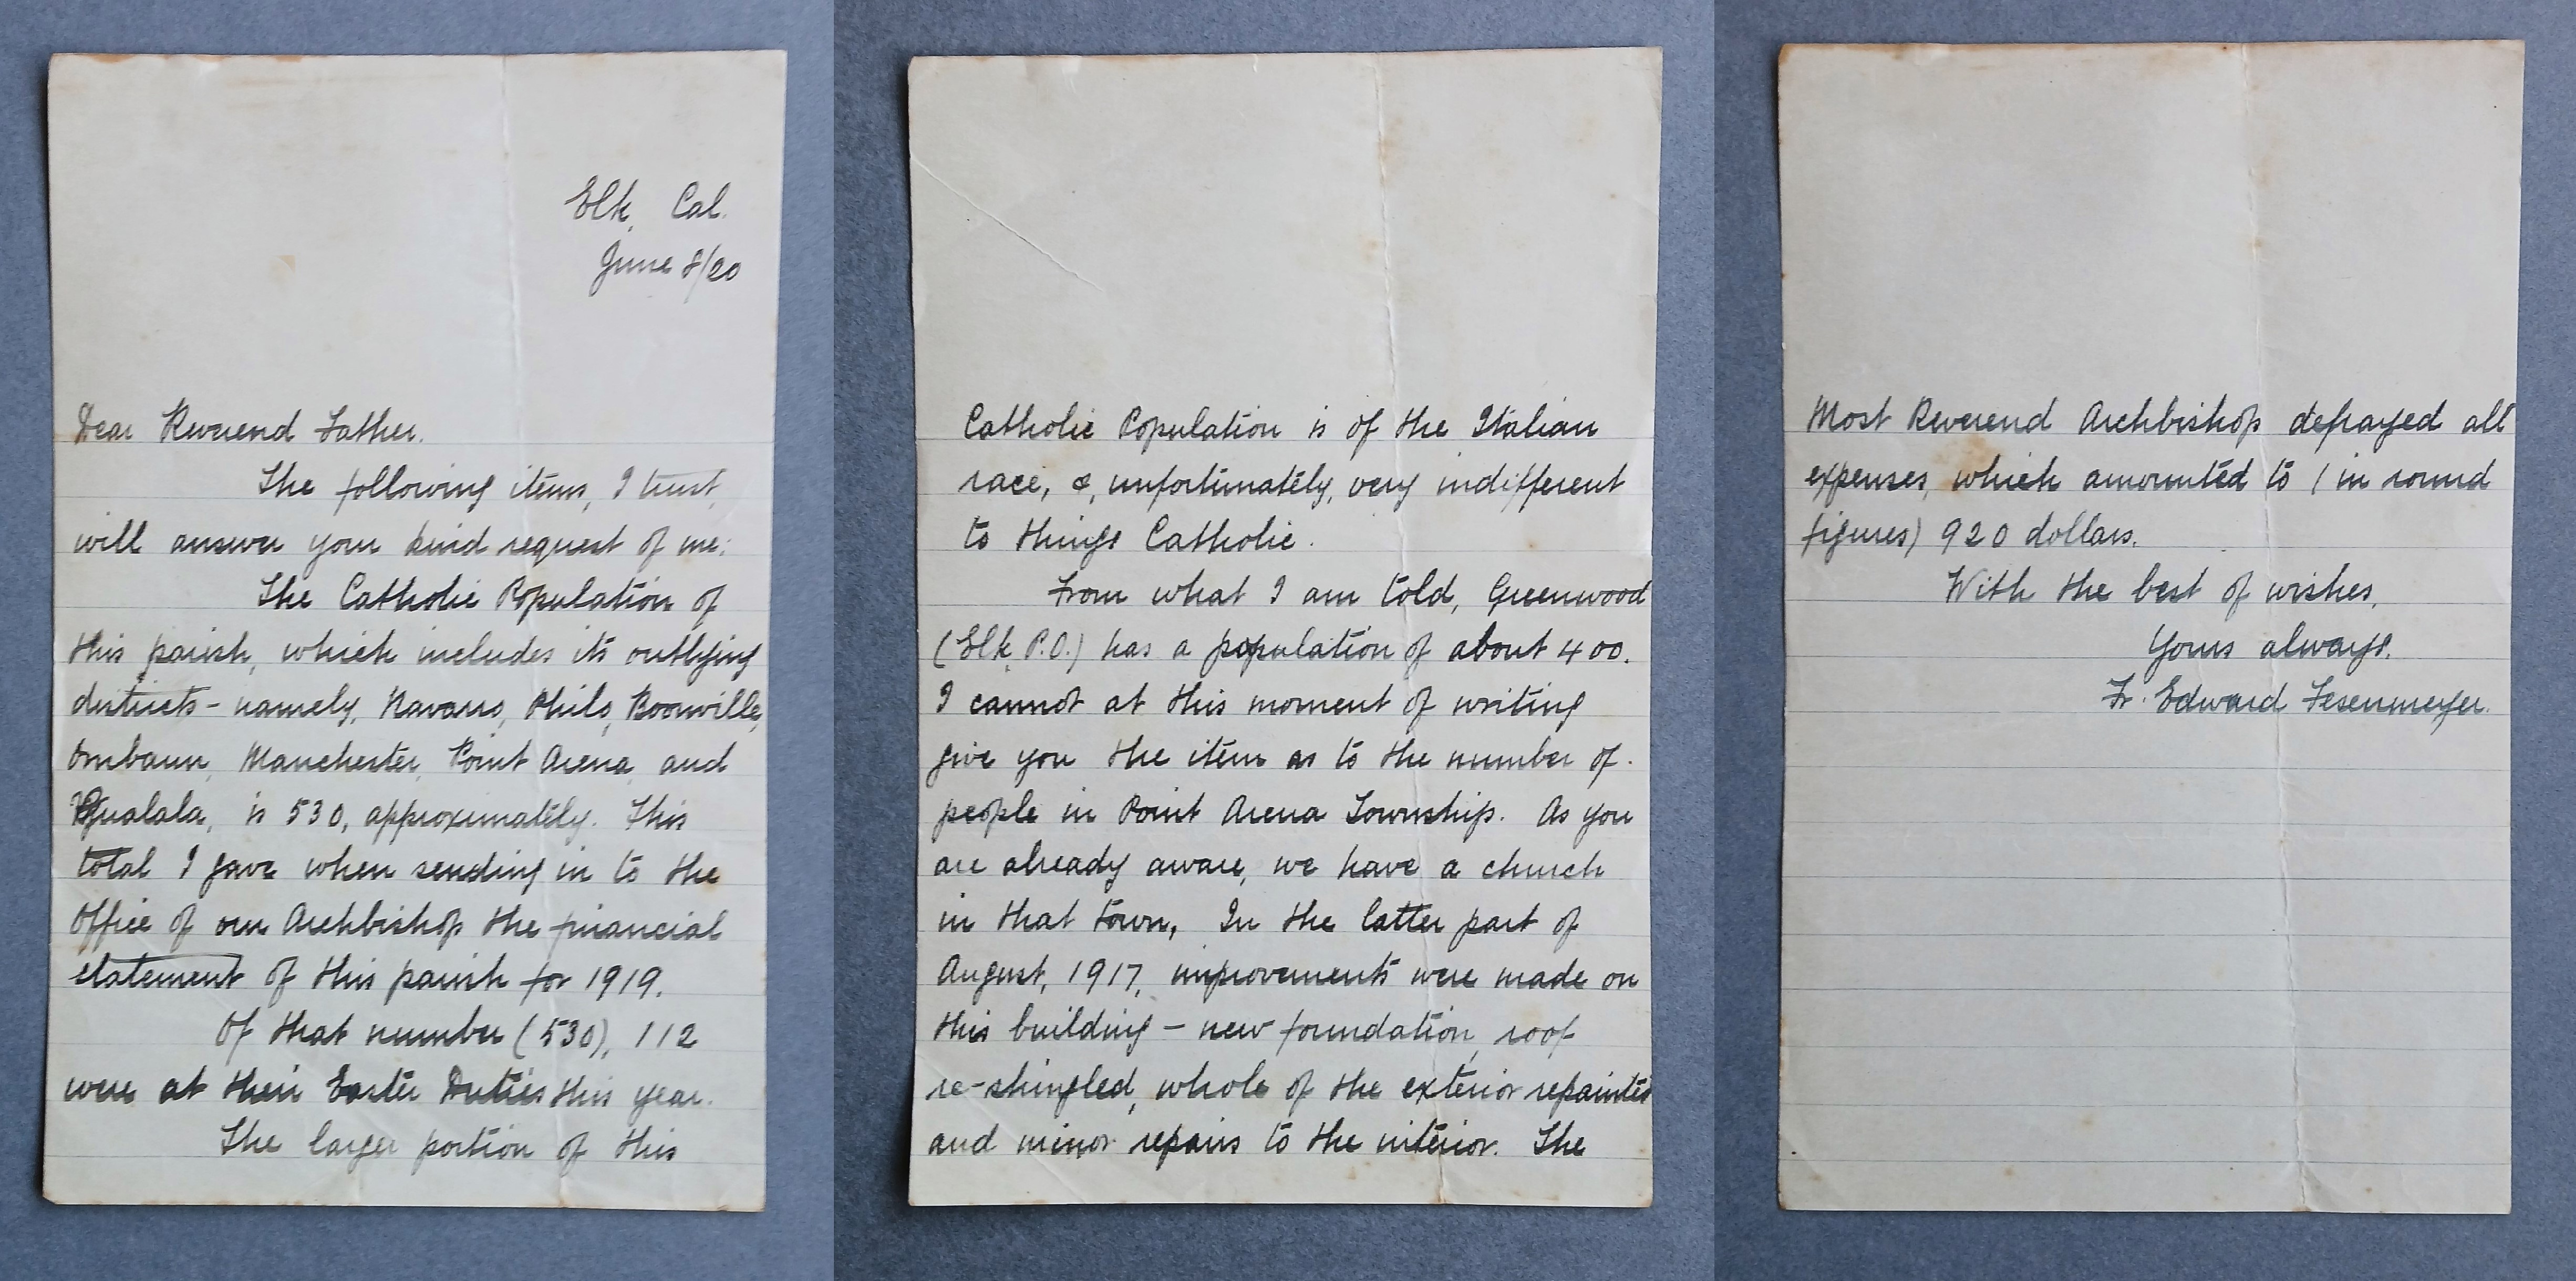 Elk, Cal.
June 8/20
Dear Reverend Father.
The following items, I trust,
will answer your kind request of me:
The Catholic Population of
this parish, which includes its outlying
districts - namely, Navarro, Philo, Boonville,
Ornbaun, Manchester, Point Arena, and
Gualala, is 530, approximately. This
total I gave when sending in to the
Office of our Archbishop the financial
statement of this parish for 1919.
Of that number (530), 112
were at their Easter Duties this year.
The larger portion of this
Catholic Population is of the Italian
race, &, unfortunately, very indifferent
to things Catholic.
From what I am told, Greenwood
(Elk, P.O.) has a population of about 400.
I cannot at this moment of writing
give you the item as to the number of
people in Point Arena Township. As you
are already aware, we have a church
in that town. In the latter part of
August, 1917, improvements were made on
this building - new foundation, roof
re-shingled, whole of the exterior repainted
and minor repairs to the interior. The
Most Reverend Archbishop defrayed all
expenses, which amounted to (in round
figures) 920 dollars.
With the best of wishes,
Yours always.
Fr. Edward Fesenmeyer.